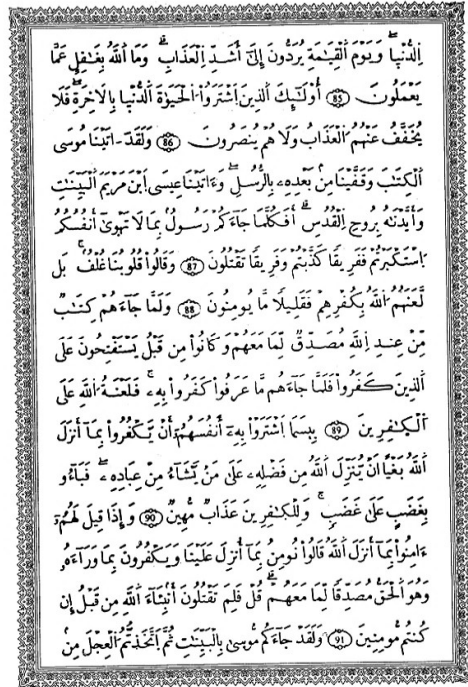 اِ۬لدُّنْيَا وَيَوْمَ اَ۬لْقِيَٰمَةِ يُرَدُّونَ إِلَىٰٓ أَشَدِّ اِ۬لْعَذَابِ وَمَا اَ۬للَّهُ بِغَٰفِلٍ عَمَّا
يَعْمَلُونَ 85 أُوْلَٰٓئِكَ اَ۬لذِينَ اَ۪شْتَرَوُاْ اُ۬لْحَيَوٰةَ اَ۬لدُّنْيَا بِالَاخِرَةِ فَلَا
يُخَفَّفُ عَنْهُمُ اُ۬لْعَذَابُ وَلَا هُمْ يُنصَرُونَ 86 وَلَقَدَ اٰتَيْنَا مُوسَى
اَ۬لْكِتَٰبَ وَقَفَّيْنَا مِنۢ بَعْدِهِۦ بِالرُّسُلِ وَءَاتَيْنَا عِيسَى اَ۪بْنَ مَرْيَمَ اَ۬لْبَيِّنَٰتِ
وَأَيَّدْنَٰهُ بِرُوحِ اِ۬لْقُدُسِ أَفَكُلَّمَا جَآءَكُمْ رَسُولُۢ بِمَا لَا تَهْوَىٰٓ أَنفُسُكُمُ
اُ۪سْتَكْبَرْتُمْ فَفَرِيقاٗ كَذَّبْتُمْ وَفَرِيقاٗ تَقْتُلُونَ 87 وَقَالُواْ قُلُوبُنَا غُلْفُۢ بَل
لَّعَنَهُمُ اُ۬للَّهُ بِكُفْرِهِمْ فَقَلِيلاٗ مَّا يُومِنُونَ 88 وَلَمَّا جَآءَهُمْ كِتَٰبٞ
مِّنْ عِندِ اِ۬للَّهِ مُصَدِّقٞ لِّمَا مَعَهُمْ وَكَانُواْ مِن قَبْلُ يَسْتَفْتِحُونَ عَلَى
اَ۬لذِينَ كَفَرُواْ فَلَمَّا جَآءَهُم مَّا عَرَفُواْ كَفَرُواْ بِهِۦ فَلَعْنَةُ اُ۬للَّهِ عَلَى
اَ۬لْكَٰفِرِينَ 89 بِيسَمَا اَ۪شْتَرَوْاْ بِهِۦٓ أَنفُسَهُمُۥٓ أَنْ يَّكْفُرُواْ بِمَآ أَنزَلَ
اَ۬للَّهُ بَغْياً اَنْ يُّنَزِّلَ اَ۬للَّهُ مِن فَضْلِهِۦ عَلَىٰ مَنْ يَّشَآءُ مِنْ عِبَادِهِۦ فَبَآءُو
بِغَضَبٍ عَلَىٰ غَضَبٖ وَلِلْكَٰفِرِينَ عَذَابٞ مُّهِينٞ 90 وَإِذَا قِيلَ لَهُمُۥٓ
ءَامِنُواْ بِمَآ أَنزَلَ اَ۬للَّهُ قَالُواْ نُومِنُ بِمَآ أُنزِلَ عَلَيْنَا وَيَكْفُرُونَ بِمَا وَرَآءَهُۥ
وَهُوَ اَ۬لْحَقُّ مُصَدِّقاٗ لِّمَا مَعَهُمْ قُلْ فَلِمَ تَقْتُلُونَ أَنۢبِئَآءَ اَ۬للَّهِ مِن قَبْلُ إِن
كُنتُم مُّومِنِينَ 91 وَلَقَدْ جَآءَكُم مُّوسَىٰ بِالْبَيِّنَٰتِ ثُمَّ اَ۪تَّخَذتُّمُ اُ۬لْعِجْلَ مِنۢ